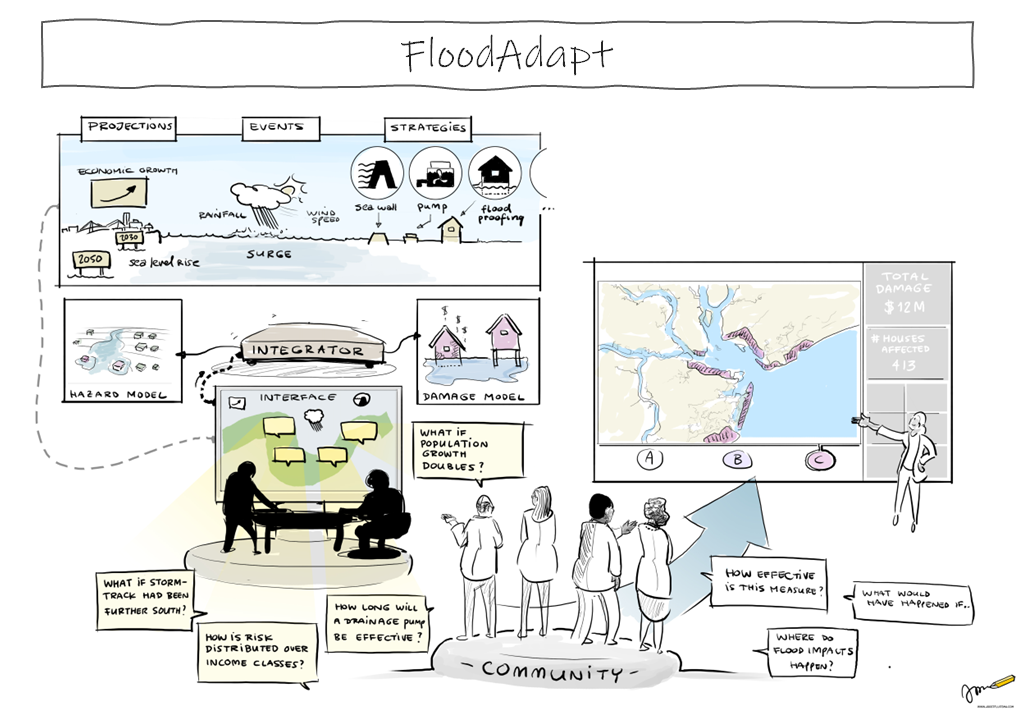 FloodAdapt
PROJECTIONS
EVENTS
STRATEGIES
ECONOMIC GROWTH
RAINFALL
WIND
SPEED
sea wall
pump
flood
proofing
...
2030
2050
sea level rise
SURGE
HAZARD MODEL
INTEGRATOR
$
$
$
$
DAMAGE MODEL
INTERFACE
WHAT IF
POPULATION
GROWTH
DOUBLES?
TOTAL
DAMAGE
$12M
# HOUSES
AFFECTED
413
A
B
C
WHAT IF STORM-
TRACK HAD BEEN
FURTHER SOUTH?
HOW IS RISK
DISTRIBUTED OVER
INCOME CLASSES?
HOW LONG WILL
A DRAINAGE PUMP
BE EFFECTIVE?
HOW EFFECTIVE
IS THIS MEASURE?
WHAT WOULD
HAVE HAPPENED IF..
WHERE DO
FLOOD IMPACTS
HAPPEN?
- COMMUNITY -